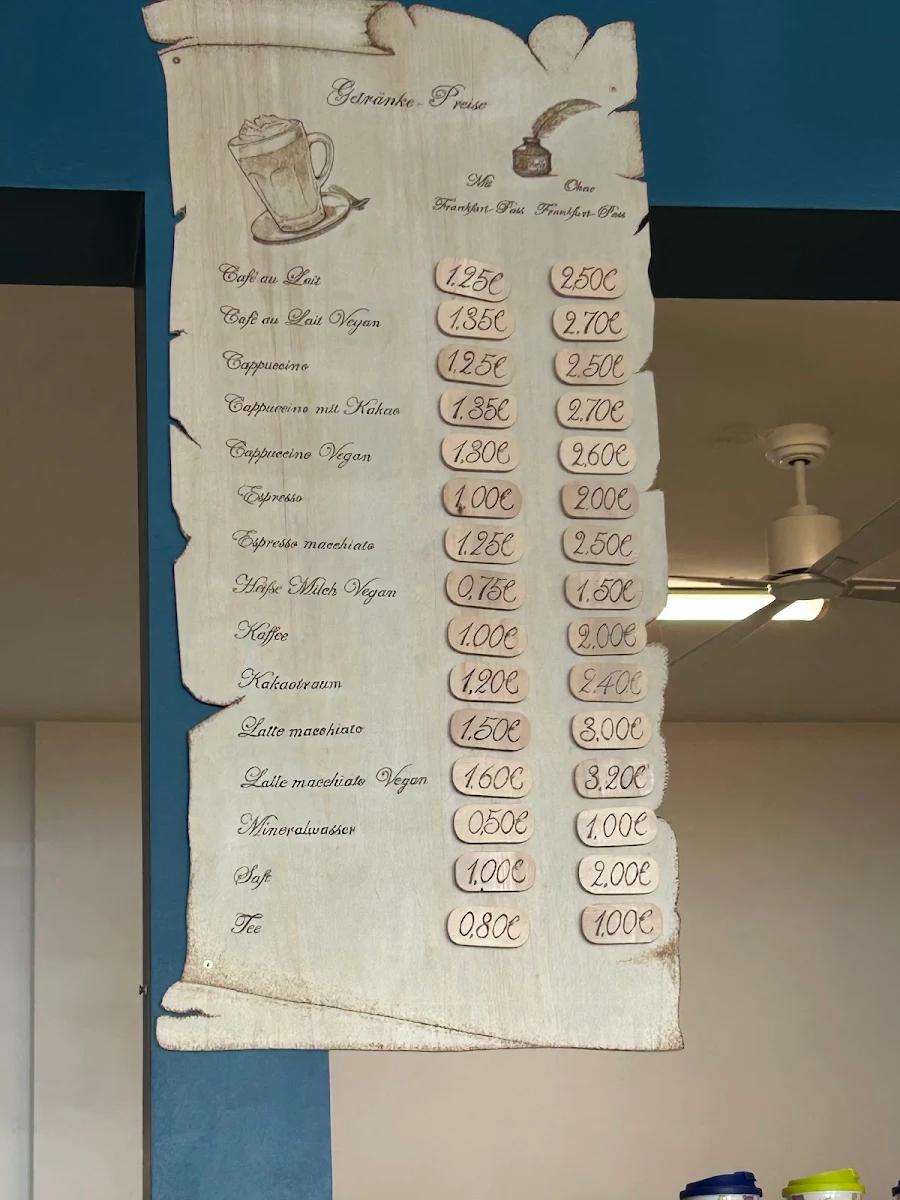 Getränke-Preise
Mit Frankfurt-Pass Ohne Frankfurt-Pass
Café au Lait 1.25€ 2.50€
Café au Lait Vegan 1.35€ 2.70€
Cappuccino 1.25€ 2.50€
Cappuccino mit Kakao 1.35€ 2.70€
Cappuccino Vegan 1.30€ 2.60€
Espresso 1.00€ 2.00€
Espresso macchiato 1.25€ 2.50€
Heiße Milch Vegan 0.75€ 1.50€
Kaffee 1.00€ 2.00€
Kakaotraum 1.20€ 2.40€
Latte macchiato 1.50€ 3.00€
Latte macchiato Vegan 1.60€ 3.20€
Mineralwasser 0.50€ 1.00€
Saft 1.00€ 2.00€
Tee 0.80€ 1.00€